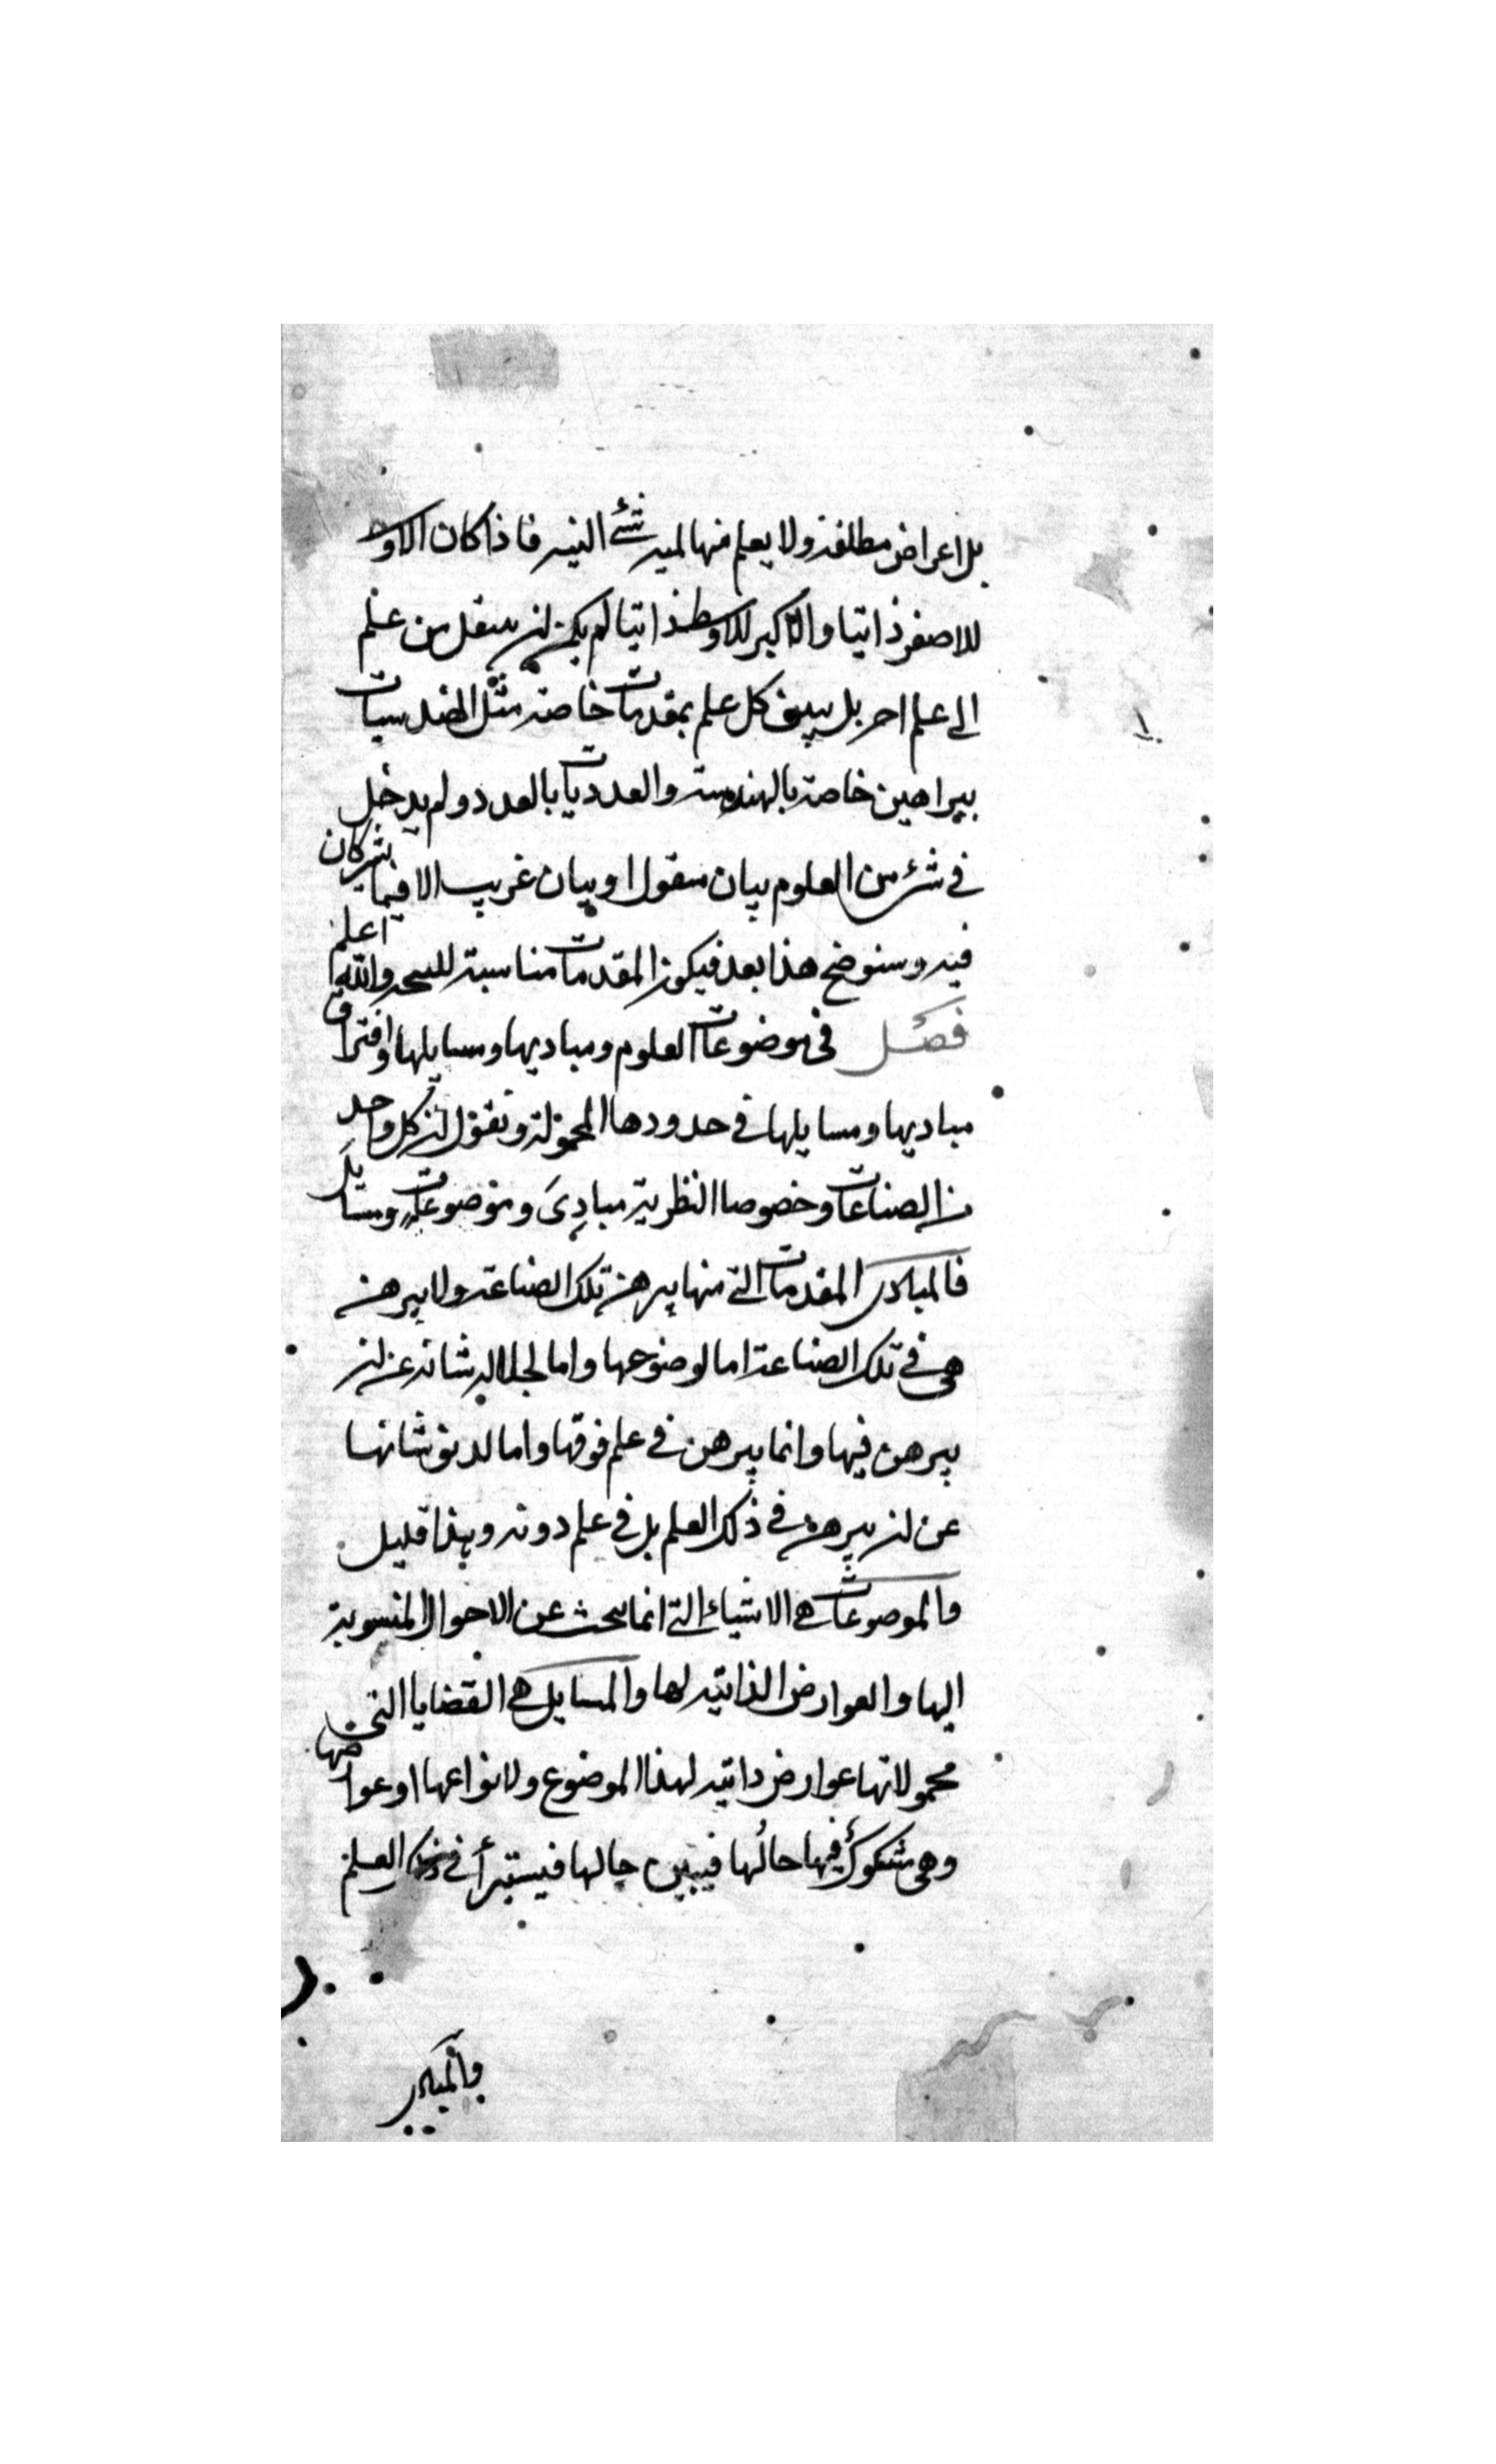 بل اعراض مطلقة ولا يعلم منها لمية شئ البتة فاذا كان الاوسط
للاصغر ذاتيا والاكبر للاوسط ذاتيا لم يمكن ان ينقل من علم
الى علم اخر بل يبين كل علم بمقدمات خاصة مثل الهندسيات
ببراهين خاصة بالهندسة والعدديات بالعدد ولم يدخل
في شئ من العلوم بيان منقول او بيان غريب الا فيما يشتركان
فيه وسنوضح هذا بعد فيكون المقدمات مناسبة للنتيجة والله اعلم
فصل في موضوعات العلوم ومباديها ومسايلها وافتراق
مباديها ومسايلها في حدودها المحمولة ونقول ان كل واحد
من الصناعات وخصوصا النظرية مبادئ وموضوعات ومسايل
فالمبادى المقدمات التي منها يبرهن تلك الصناعة ولا يبرهن
هي في تلك الصناعة اما لوضوحها واما لجلالة شانه عن ان
يبرهن فيها وانما يبرهن في علم فوقها واما لدنو شانها
عن ان يبرهن في ذلك العلم بل في علم دونه وهذا قليل
والموضوعات هي الاشياء التي انما يبحث عن الاحوال المنسوبة
اليها والعوارض الذاتية لها والمسايل هي القضايا التي
محمولاتها عوارض ذاتية لهذا الموضوع ولانواعها او عوارضها
وهي مشكوك فيها حالها فيبين حالها فيستبرأ في ذلك العلم
فالمبادى